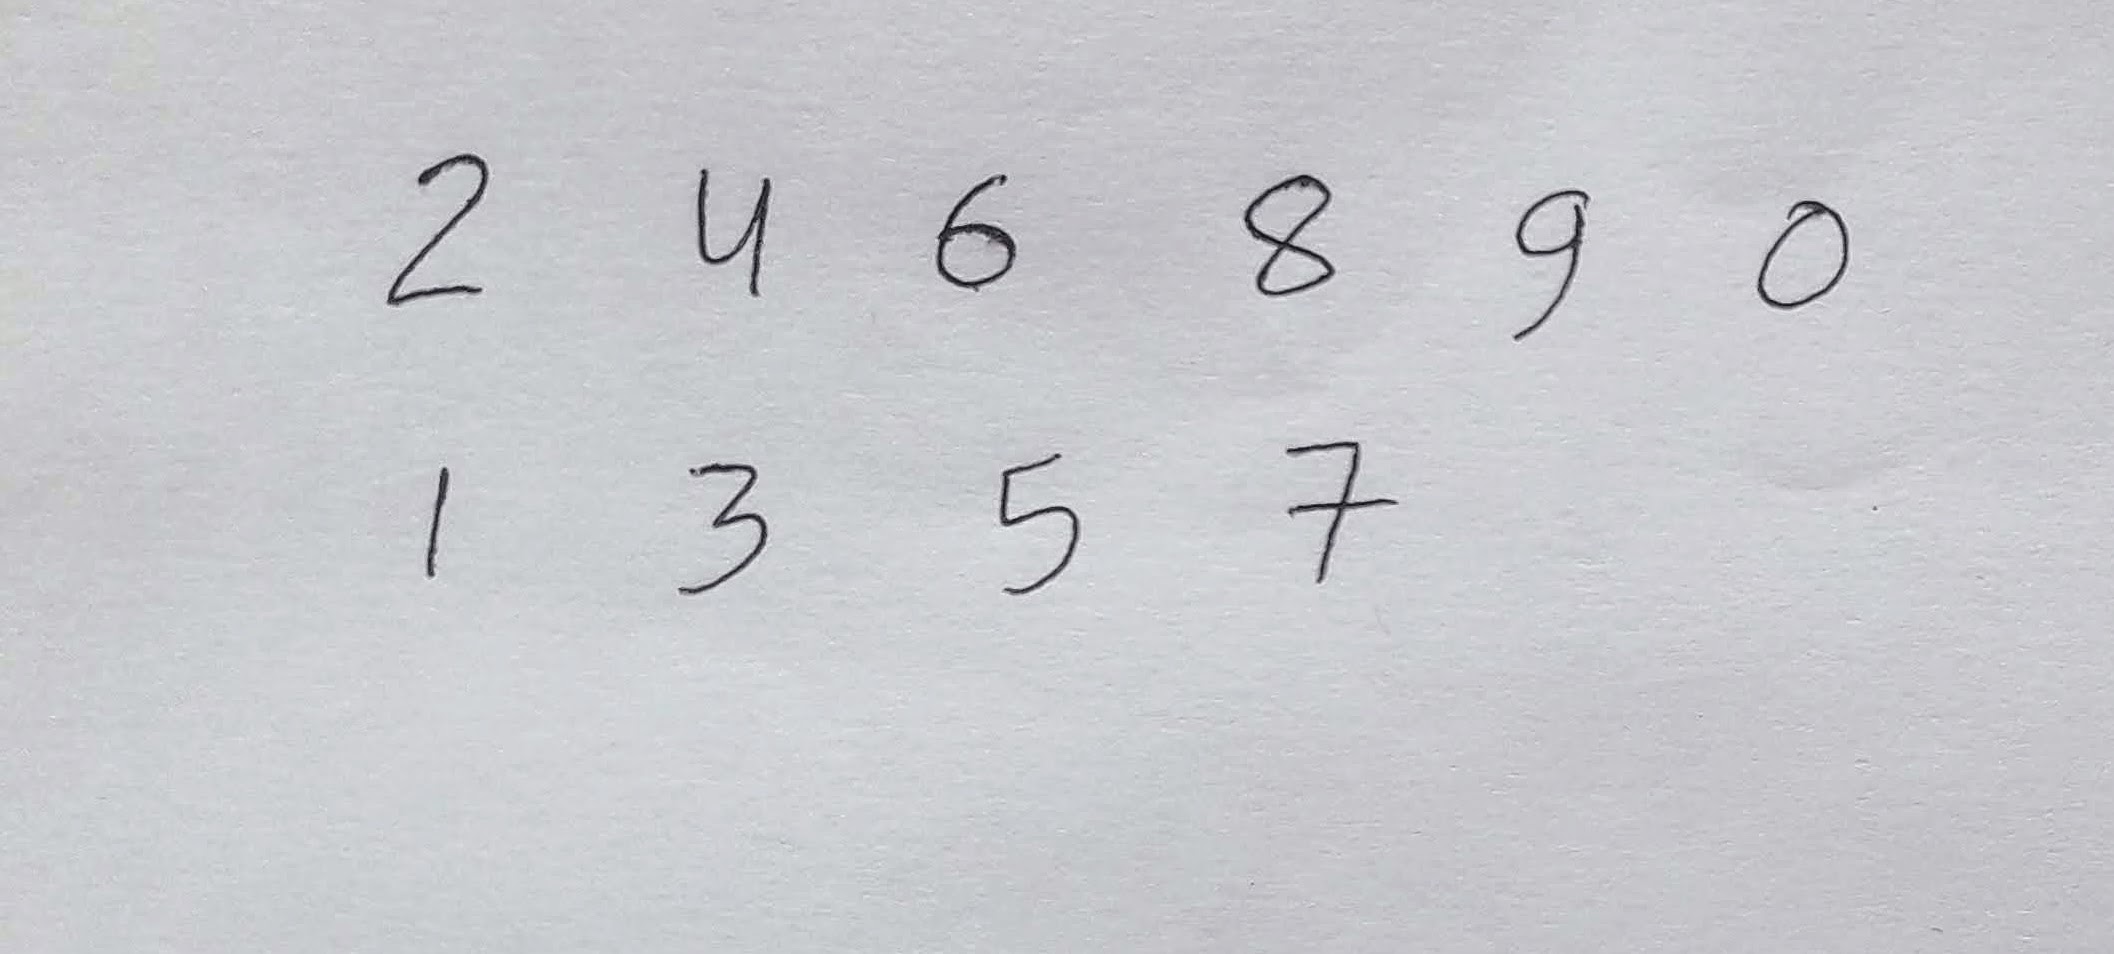 2 4 6 8 9 0
1 3 5 7